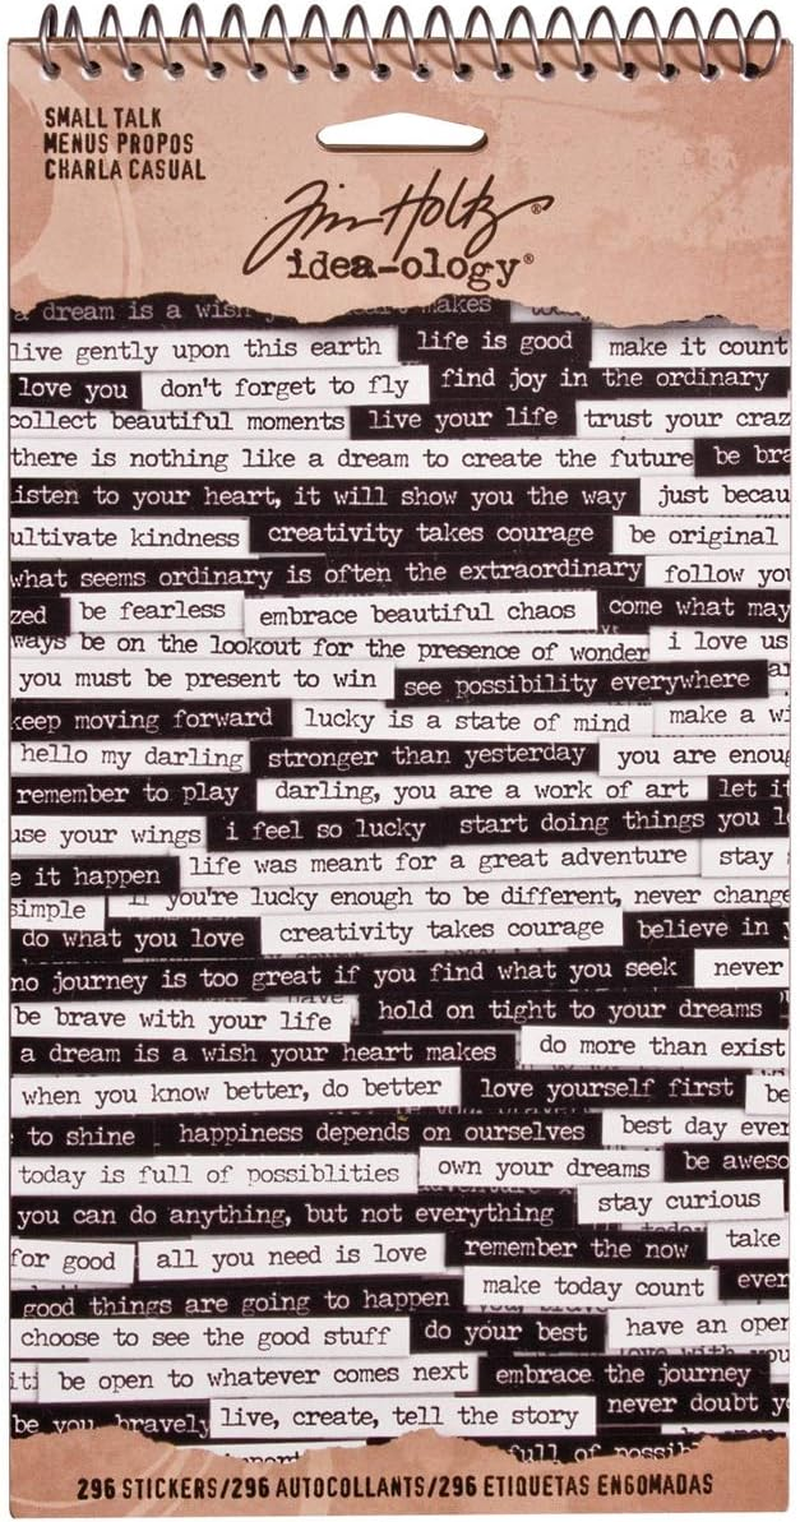 SMALL TALK
MENUS PROPOS
CHARLA CASUAL
Tim Holtz®
idea-ology®
a dream is a wish makes
live gently upon this earth life is good make it count
love you don't forget to fly find joy in the ordinary
collect beautiful moments live your life trust your craz
there is nothing like a dream to create the future be bra
isten to your heart, it will show you the way just becau
ultivate kindness creativity takes courage be original
what seems ordinary is often the extraordinary follow you
zed be fearless embrace beautiful chaos come what may
ways be on the lookout for the presence of wonder i love us
you must be present to win see possibility everywhere
keep moving forward lucky is a state of mind make a wi
hello my darling stronger than yesterday you are enoug
remember to play darling, you are a work of art let it
use your wings i feel so lucky start doing things you l
e it happen life was meant for a great adventure stay
simple if you're lucky enough to be different, never change
do what you love creativity takes courage believe in y
no journey is too great if you find what you seek never
be brave with your life hold on tight to your dreams
a dream is a wish your heart makes do more than exist
when you know better, do better love yourself first be
to shine happiness depends on ourselves best day ever
today is full of possiblities own your dreams be aweso
you can do anything, but not everything stay curious
for good all you need is love remember the now take
good things are going to happen make today count ever
choose to see the good stuff do your best have an open
iti be open to whatever comes next embrace the journey
be you, bravely live, create, tell the story never doubt y
full of possib
296 STICKERS/296 AUTOCOLLANTS/296 ETIQUETAS ENGOMADAS